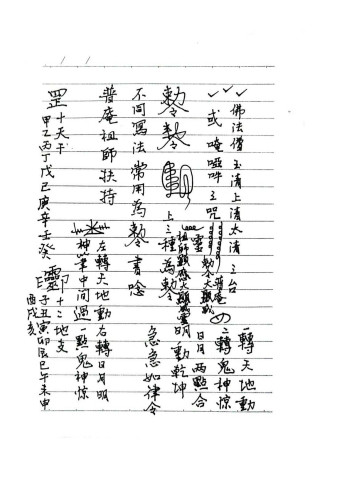 佛法僧玉清上清太清三台
或唵啞吽三咒
勅勅
上三種為勅
不同寫法常用為勅書唸
普庵祖師扶持
罡十天干
甲乙丙丁戊己庚辛壬癸
一轉天地動
二轉鬼神惊
日月兩點合
明動乾坤
急急如律令
左轉天地動右轉日月明
神筆中間過一點鬼神惊
十二地支
子丑寅卯辰巳午未申
酉戌亥